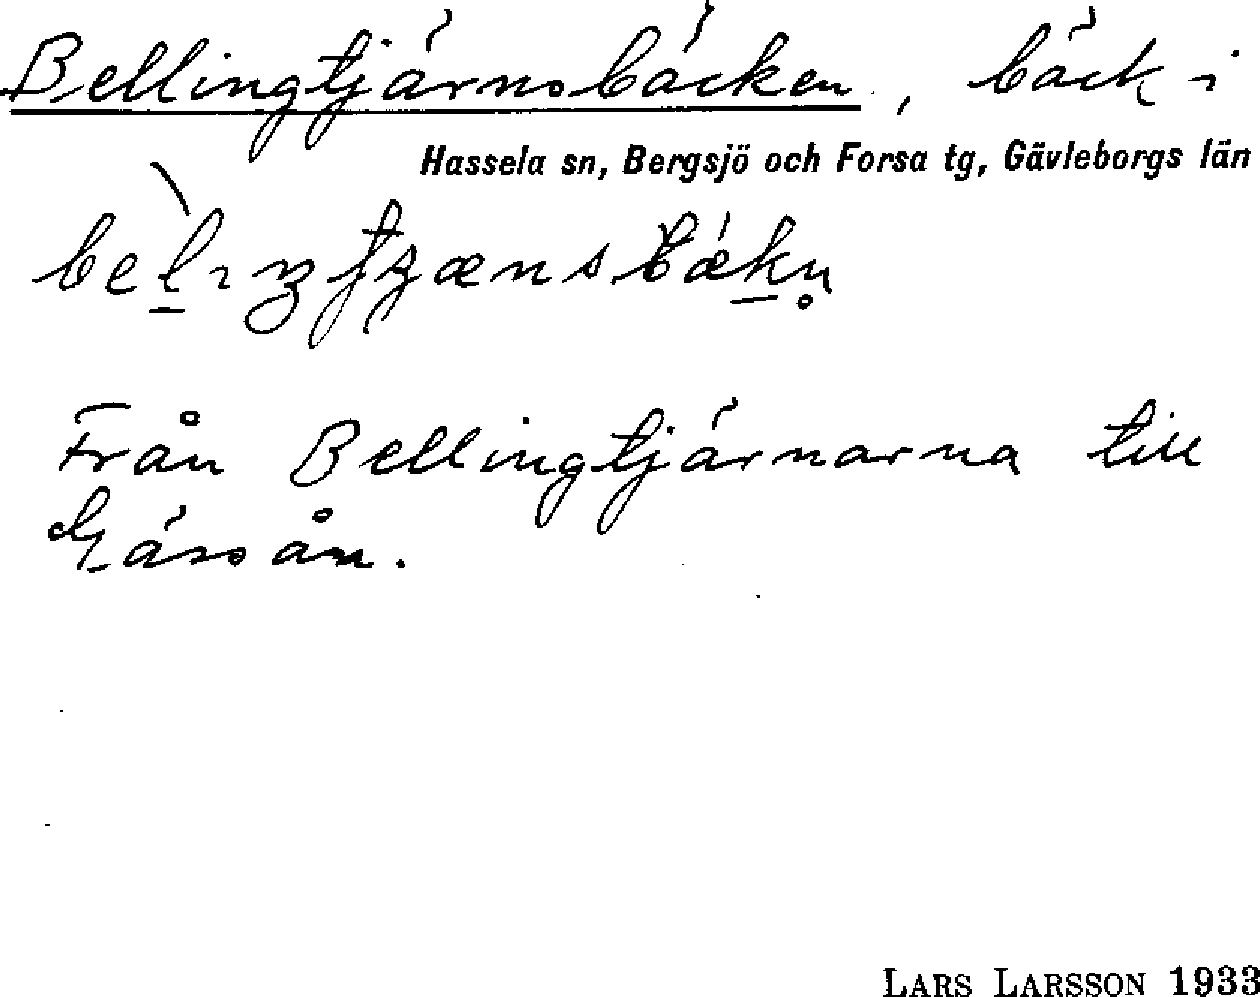 Bellingtjärnsbäcken, bäck i
Hassela sn, Bergsjö och Forsa tg, Gävleborgs län
Från Bellingtjärnarna till
Gåssån.
LARS LARSSON 1933